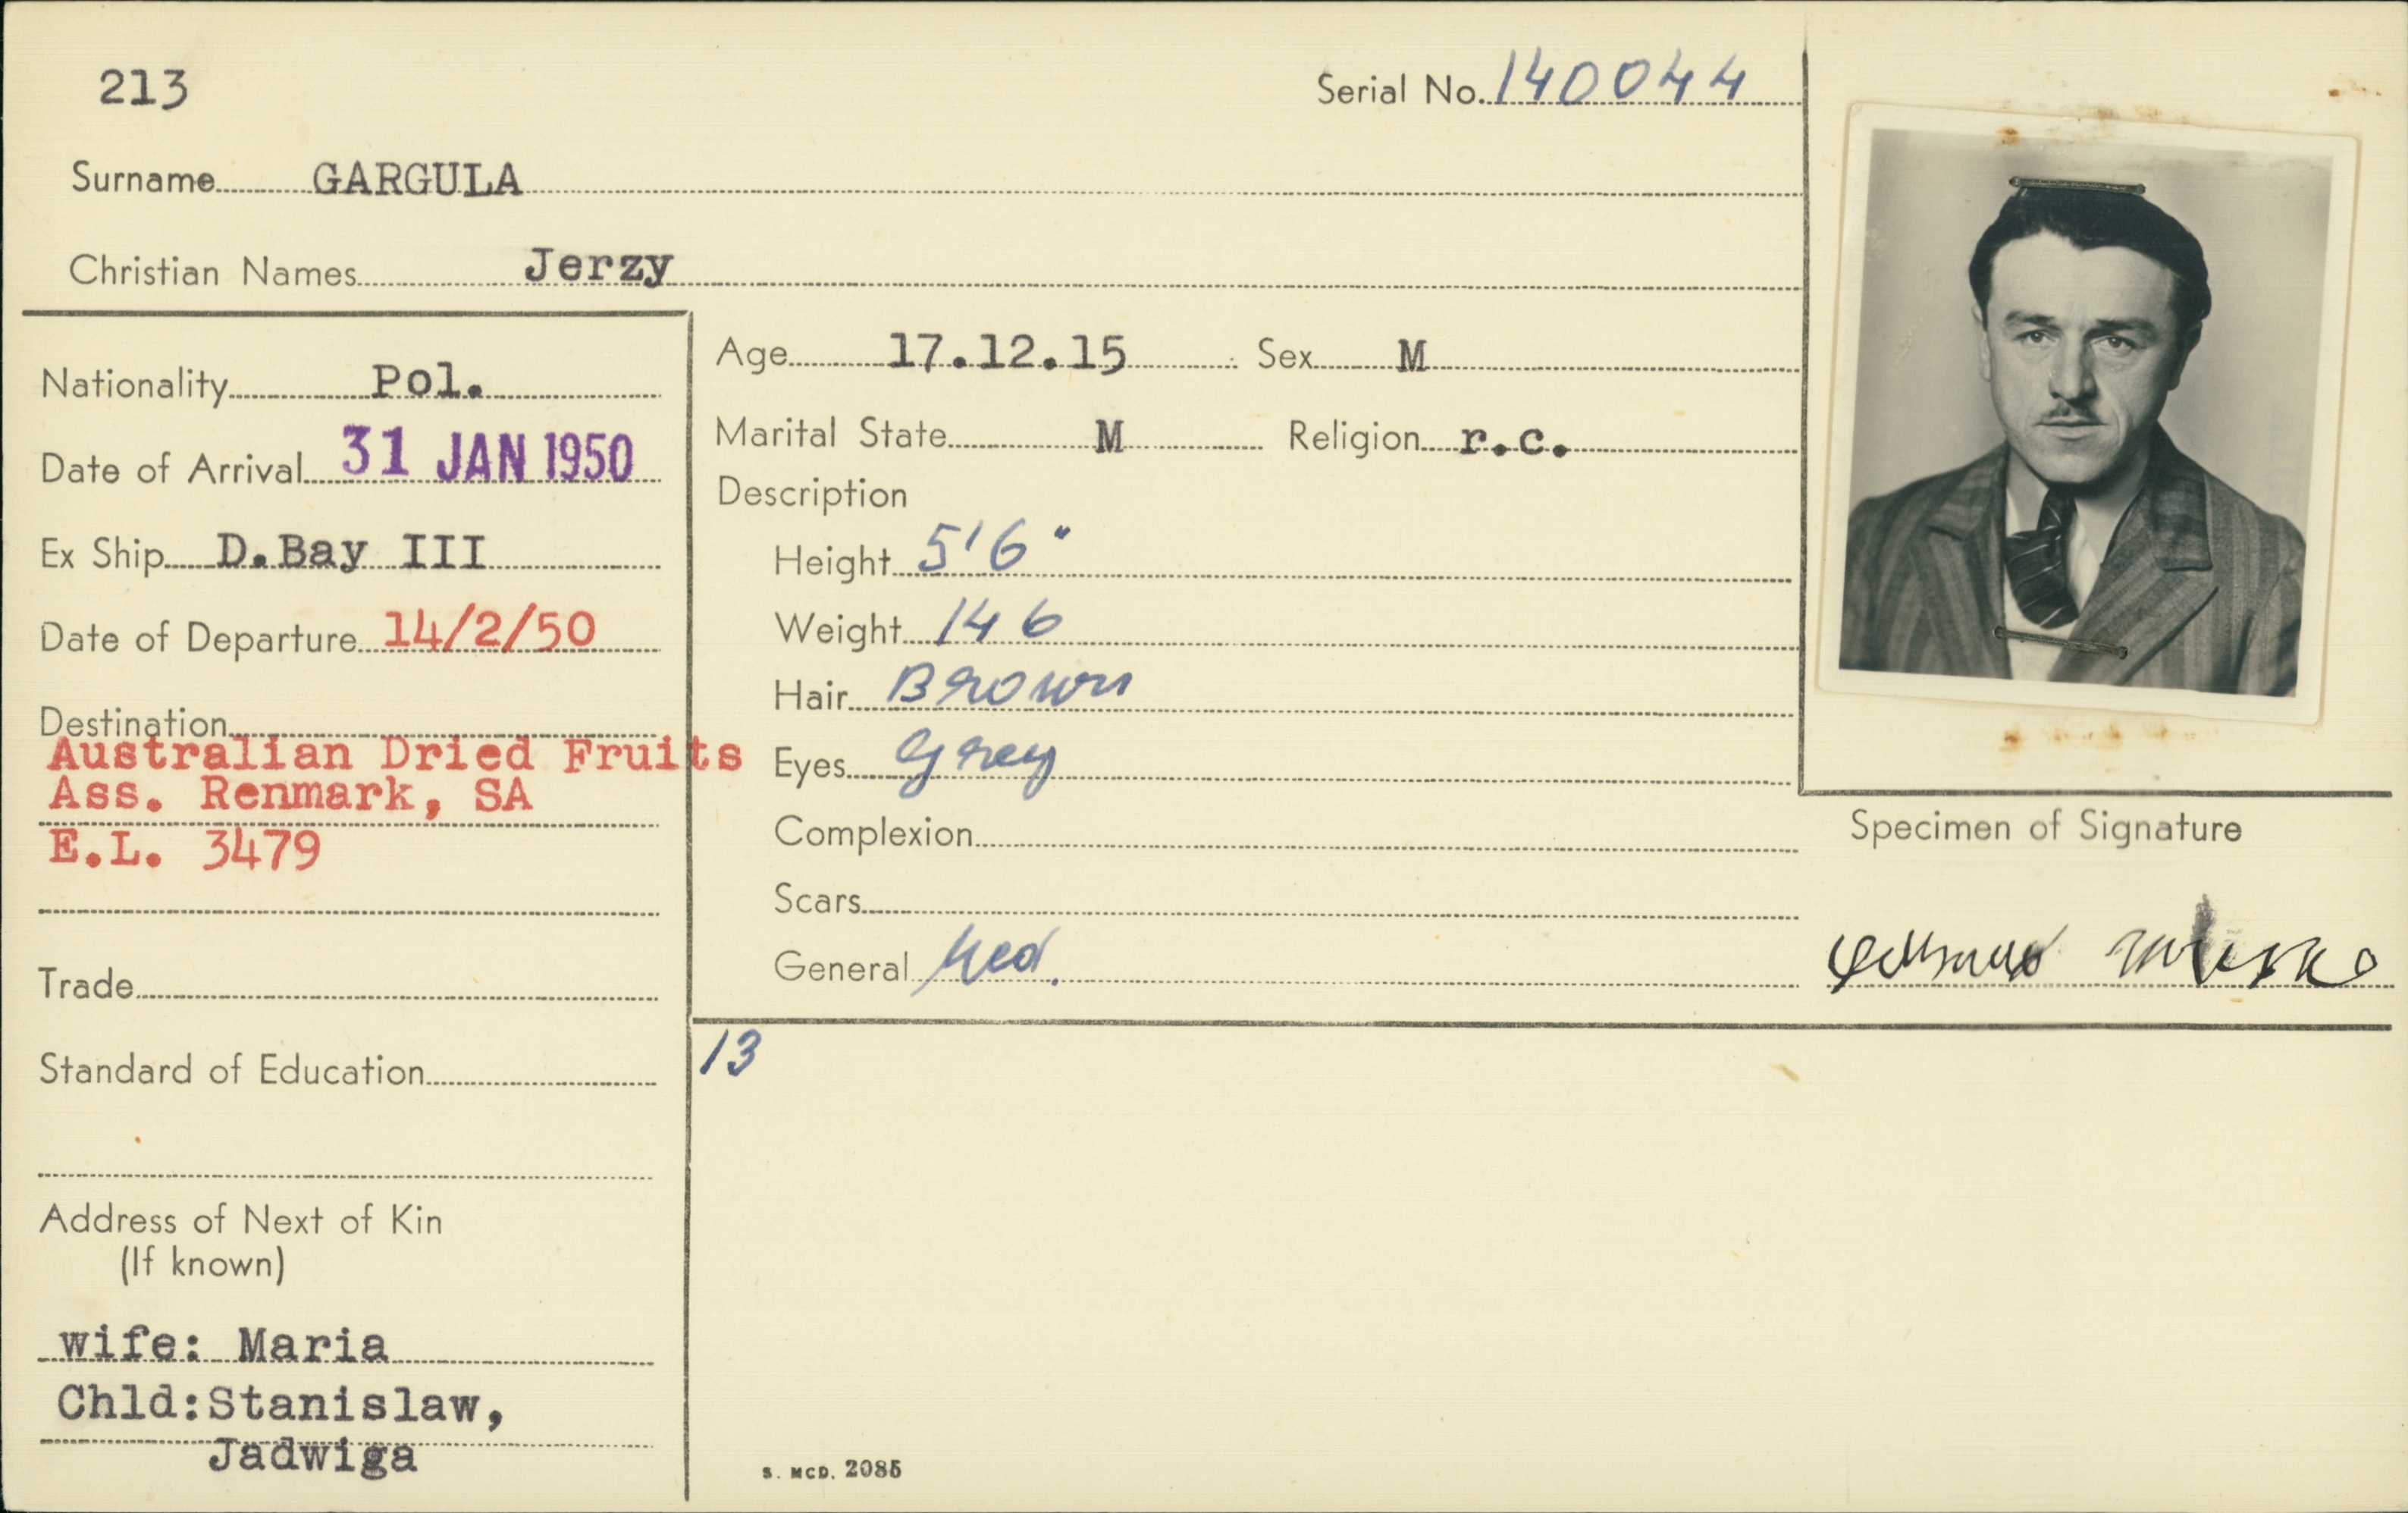 213
Serial No. 140044
Surname GARGULA
Christian Names Jerzy
Nationality Pol.
Date of Arrival 31 JAN 1950
Ex Ship D.Bay III
Date of Departure 14/2/50
Destination
Australian Dried Fruits
Ass. Renmark, SA
E.L. 3479
Trade
Standard of Education
Address of Next of Kin
(If known)
wife: Maria
Chld:Stanislaw,
Jadwiga
Age 17.12.15 Sex M
Marital State M Religion r.c.
Description
Height 5'6"
Weight 146
Hair Brown
Eyes Grey
Complexion
Scars
General Med.
Specimen of Signature
13
S. MCD. 2085